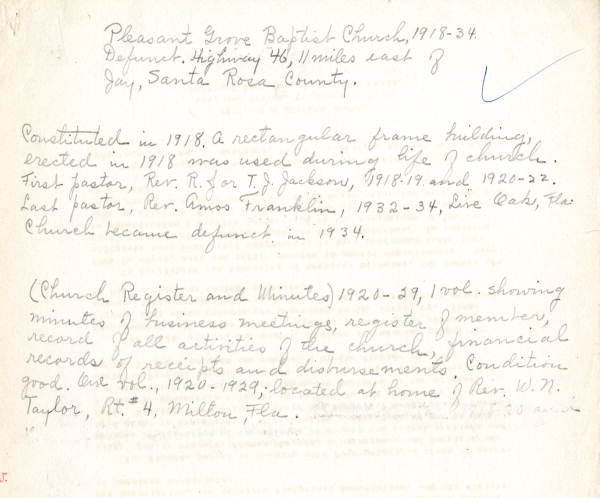 Pleasant Grove Baptist Church, 1918-34.
Defunct. Highway 46, 11 miles east of
Jay, Santa Rosa County.
Constituted in 1918. A rectangular frame building,
erected in 1918 was used during life of church.
First pastor, Rev. R. J. or T. J. Jackson, 1918-19 and 1920-22.
Last pastor, Rev. Amos Franklin, 1932-34, Live Oak, Fla.
Church became defunct in 1934.
(Church Register and Minutes) 1920-29, 1 vol. showing
minutes of business meetings, register of member,
record of all activities of the church, financial
records of receipts and disbursements. Condition
good. One vol., 1920-1929, located at home of Rev. W. N.
Taylor, Rt. #4, Milton, Fla.